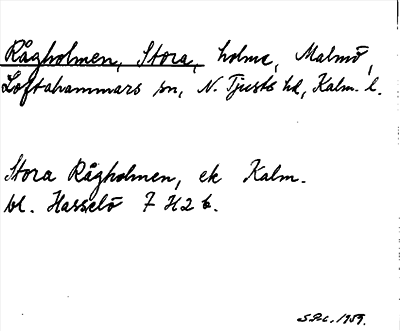 Rågholmen, Stora, holme, Malmö,
Loftahammars sn, N. Tjusts hd, Kalm. l.
Stora Rågholmen, ek Kalm.
bl. Hasselö 7 H 2 b.
1959.